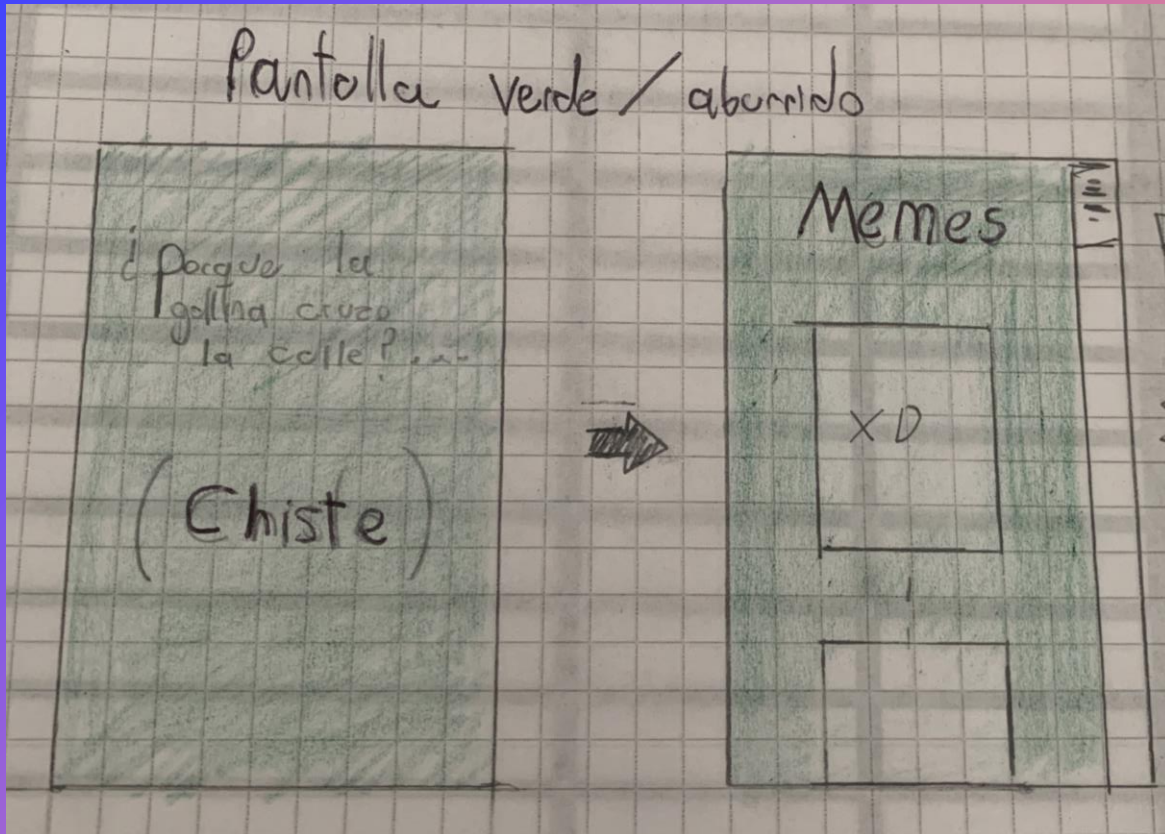 Pantalla verde / aburrido
¿Porque la
gallina cruzo
la calle?....
(Chiste)
Memes
XD